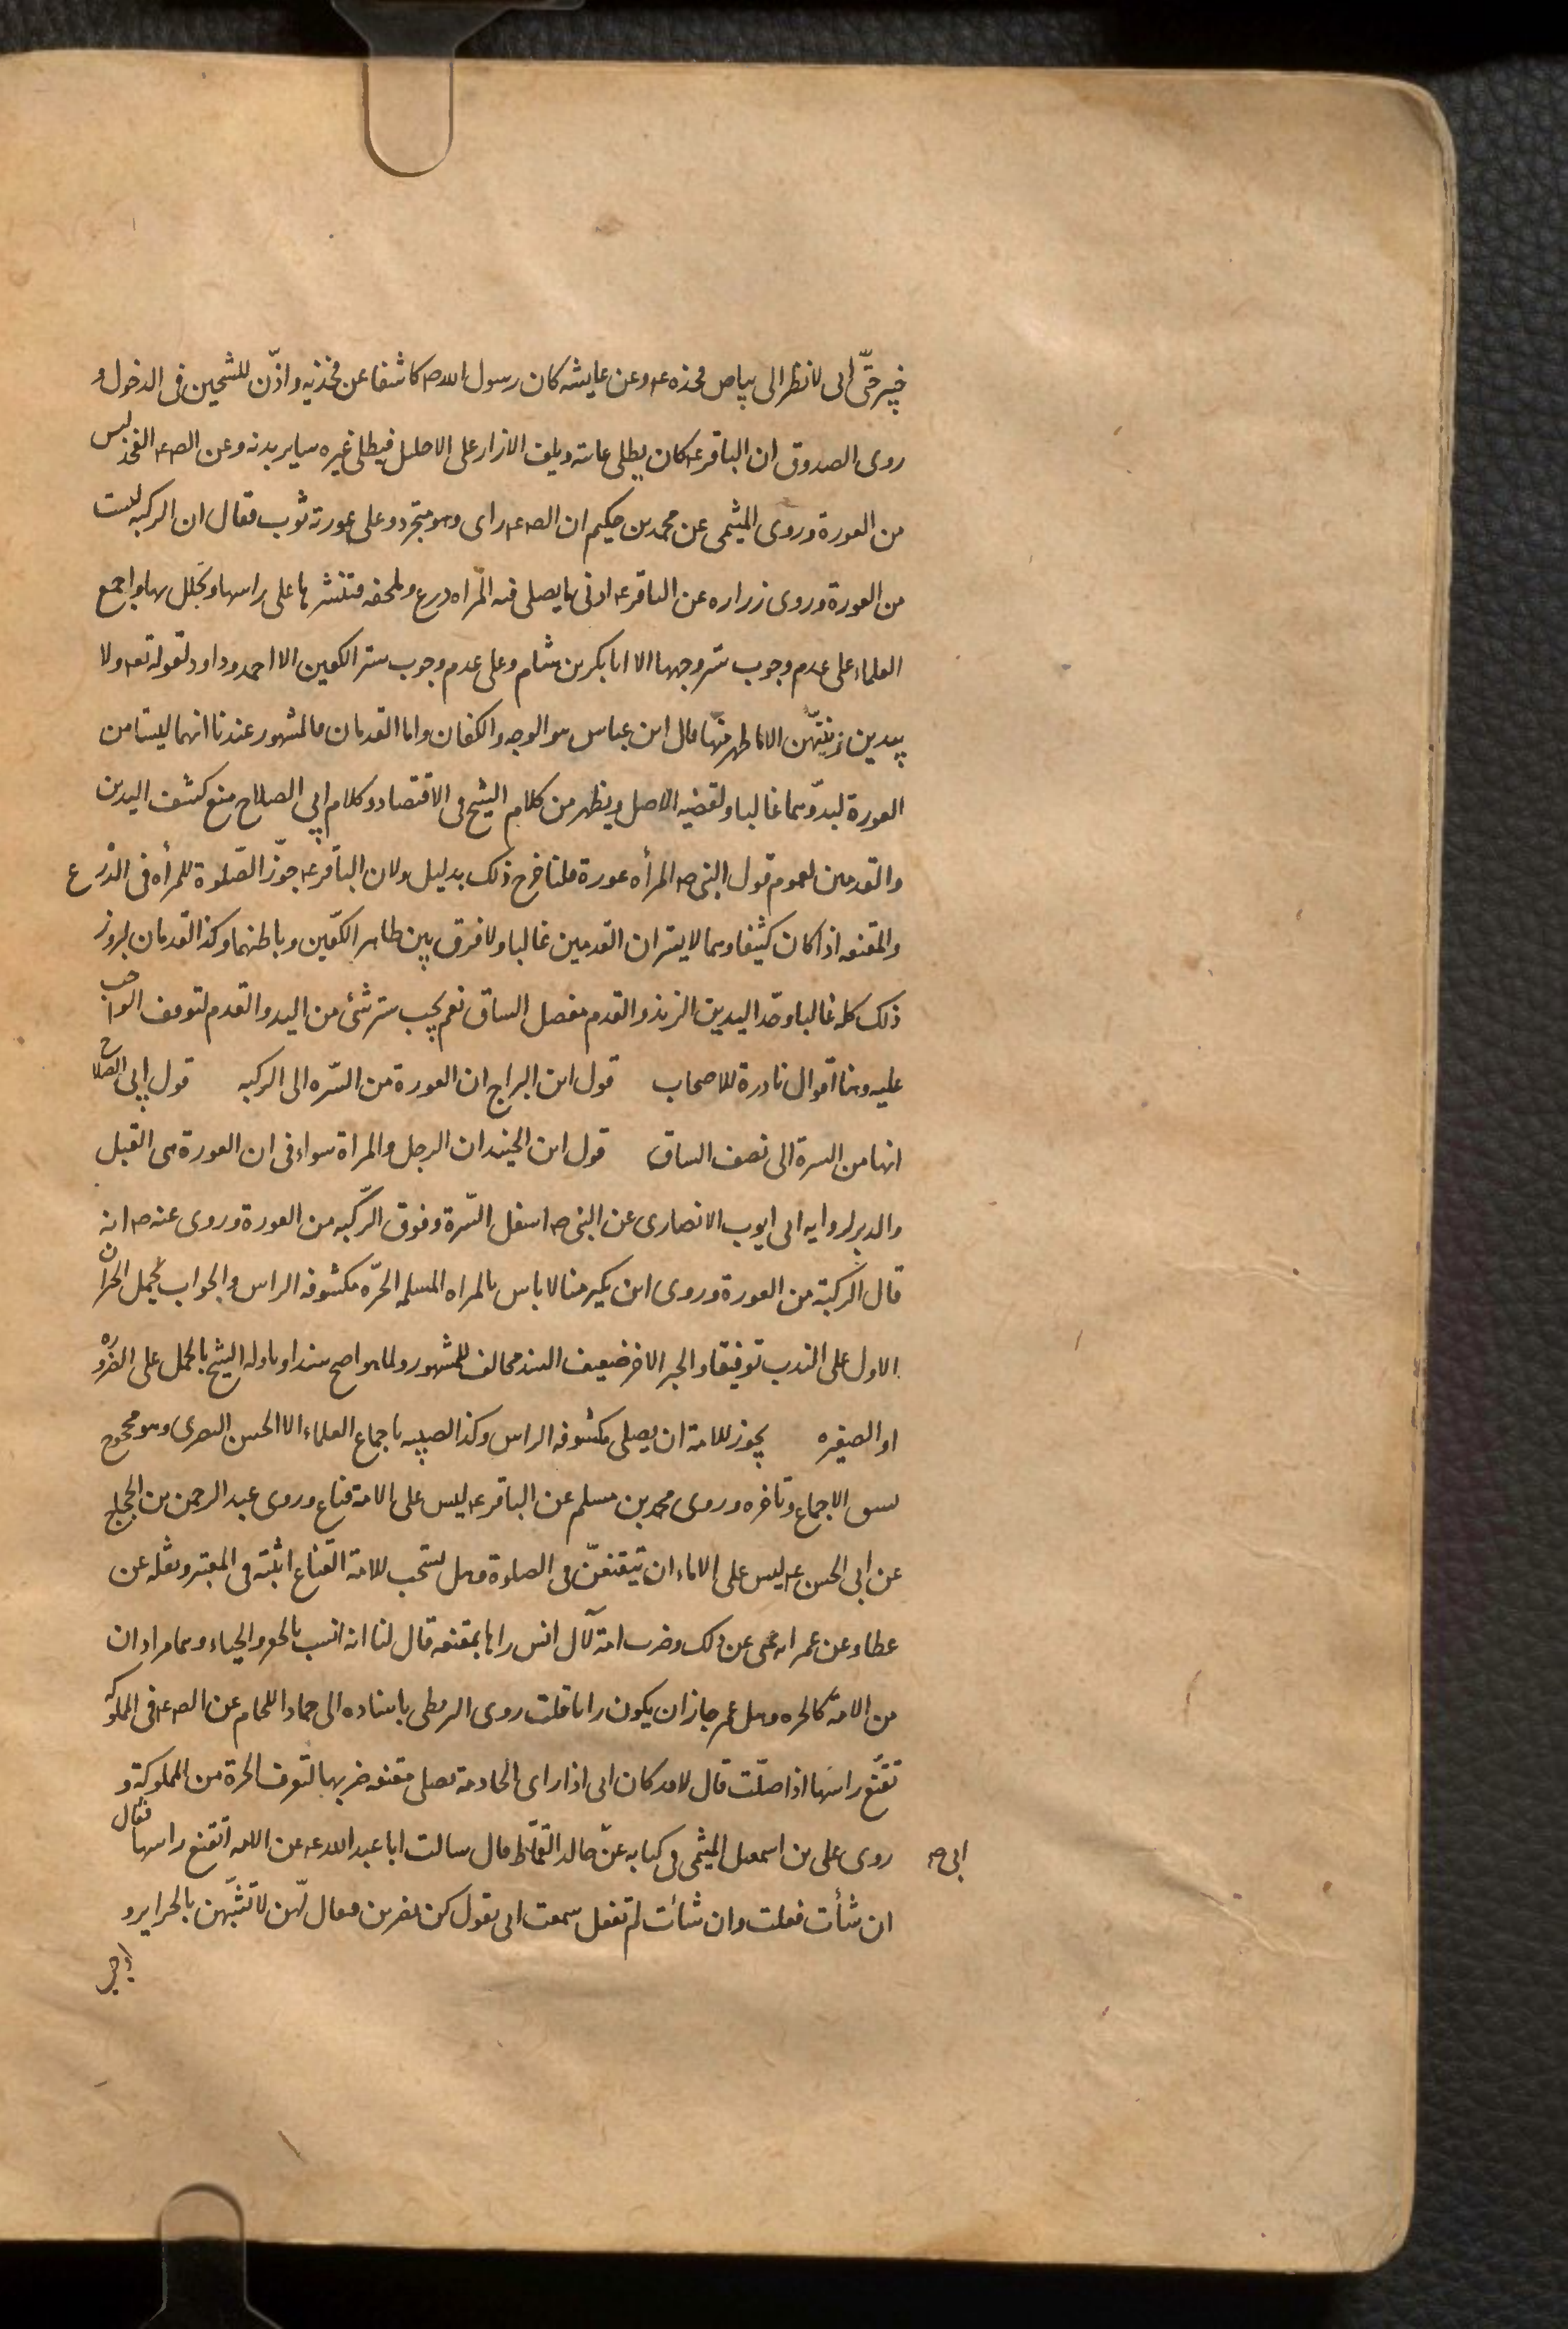 خيبر حتّى انى لانظر الى بياض فخذه ع و عن عايشه كان رسول الله ص كاشفا عن فخذيه واذن للشيخين فى الدخول و
روى الصدوق ان الباقر ع كان يطلى عانته ويلف الازار على الاحليل فيطلى غيره ساير بدنه وعن الص ع الفخذ ليس
من العورة وروى الميثمى عن محمد بن حكيم ان الص ع راى وهو متجرد وعلى عورته ثوب فقال ان الركبه ليست
من العورة وروى زراره عن الباقر ع ادنى ما يصلى فيه المراه درع وملحفه فتنشرها على راسها وتجلل بها واجمع
العلماء على عدم وجوب ستر وجهها الا ابا بكر بن هشام وعلى عدم وجوب ستر الكفين الا احمد وداود لقوله تع ولا
يبدين زينتهن الا ما ظهر منها قال ابن عباس هو الوجه والكفان واما القدمان فالمشهور عندنا انهما ليستا من
العورة لبدوّهما غالبا ولقضيه الاصل ويظهر من كلام الشيخ فى الاقتصاد وكلام ابى الصلاح منع كشف اليدين
والقدمين لعموم قول النبى ص المرأه عورة قلنا خرج ذلك بدليل ولان الباقر ع جوّز الصّلوة للمرأه فى الدّرع
والمقنعه اذا كان كثيفا وهما لا يستران القدمين غالبا ولا فرق بين ظاهر الكفّين وباطنهما وكذا القدمان لبروز
ذلك كله غالبا وحدّ اليدين الزند والقدم مفصل الساق نعم يجب ستر شئ من اليد والقدم لتوقف الواجب
عليه وهنا اقوال نادرة للاصحاب قول ابن البراج ان العورة من السّره الى الركبه قول ابى الصلاح
انها من السرة الى نصف الساق قول ابن الجنيد ان الرجل والمراة سواء فى ان العورة هى القبل
والدبر لروايه ابى ايوب الانصارى عن النبى ص اسفل السّرة وفوق الرّكبه من العورة وروى عنه ص انه
قال الرّكبة من العورة وروى ابن بكير منا لا باس بالمراه المسلمه الحرّه مكشوفه الراس والجواب يحمل الخبران
الاول على الندب توفيقا والخبر الاخر ضعيف السند مخالف للمشهور ولما هو اصح سندا وتاوله الشيخ بالحمل على الضروره
او الصغيره يجوز للامة ان يصلى مكشوفه الراس وكذا الصبيه باجماع العلماء الا الحسن البصرى وهو محجوج
بسبق الاجماع وتاخره وروى محمد بن مسلم عن الباقر ع ليس على الامة قناع وروى عبد الرحمن بن الحجاج
عن ابى الحسن ع ليس على الاماء ان يتقنعنّ فى الصلوة وهل يستحب للامة القناع اثبته فى المعتبر ونقله عن
عطا وعن عمر انه نهى عن ذلك وضرب امة لآل انس راها بمقنعه قال لنا انه انسب بالخفر والحياء وهما مرادان
من الامة كالحره وفعل عمر جاز ان يكون رايا قلت روى البزنطى باسناده الى حماد اللحام عن الص ع فى المملوكه
تقنّع راسها اذا صلّت قال لا قد كان ابى اذا راى الخادمة تصلى مقنعه ضربها لتعرف الحرة من المملوكة و
روى على بن اسمعيل الميثمى فى كتابه عن ابى خالد القمّاط قال سالت ابا عبد الله ع عن الامه اتقنع راسها فقال
ان شأت فعلت وان شأت لم تفعل سمعت ابى يقول كن يضربن فيقال لهن لا تشبّهن بالحراير و
ابى ص